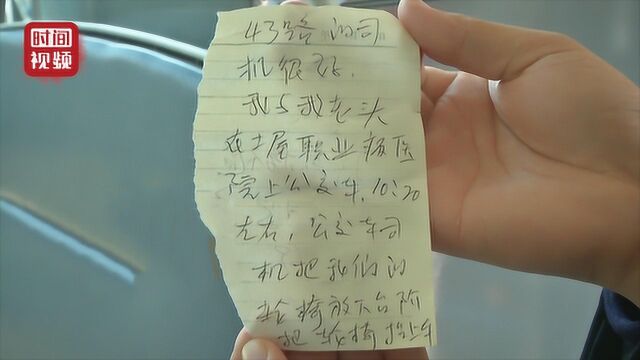 时间
视频
43路的司
机很好.
我与我老头
在土屋职业病医
院上公交车,10:20
左右,公交车司
机把我们的
轮椅放下台阶
把轮椅抬上车